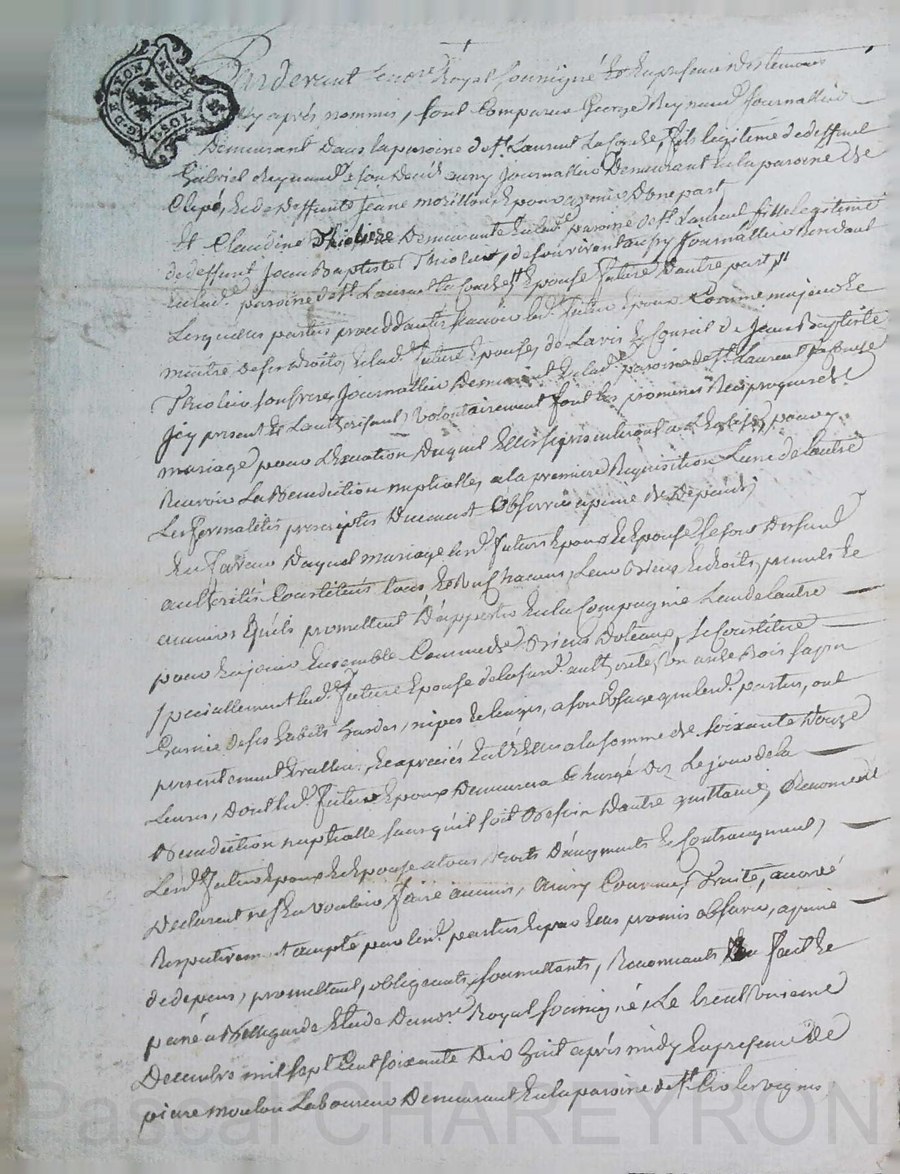 Pardevant Le not.re Royal soussigné Et En presence des temoins
Cy après nommés, sont Comparus George Reynaud Journallier
Demeurant dans la paroisse de St. Laurent La Conche, fils legitime de deffunt
Gabriel Reynaud, aussy Journallier Demeurant en la paroisse de
Clepé, Et de Deffunte Jeane morillon Epoux avenir D'une part
Et Claudine Thiolere Demeurante En lad.e paroisse de St. Laurent fille legitime
de deffunt Jean Baptiste Thiolere, de son vivant aussy Journallier
En lad.e paroisse de St. Laurent La Conche Epouse future D'autre part
Lesquelles parties procedantes scavoir led. futur Epoux Comme majeur Et
maitre de ses droits, Et lad.e future Epouse, de L'avis Et Conseil de Jean Baptiste
Thiolere son frere Journallier Demeurant En lad.e paroisse de St. Laurent
Icy present Et L'authorisant, volontairement font Les promesses Reciproques de
mariage, pour L'Execution Duquel Elles se presenteront a L'Eglise, pour y
Recevoir La Benediction nuptialle, a la premiere Requisition L'une de L'autre
Les formalités prescriptes Ducement Observées a peine de Depends,
En faveur Duquel mariage lesd. futurs Epoux Et Epouse
authorités Constituent tous Et un Chacuns Leurs Biens Et droits, presents Et
avenirs Qu'ils promettent D'apporter En la Compagnie L'un de L'autre
pour En jouir Ensemble Comme de Biens Dotaux, Se Constitue
speciallement lad.e future Epouse de la sus.d. authorité, Un arche Bois sapin
Garnie de ses habits hardes, nipes Et linges, a son Usage que lesd. parties, ont
presentement Et apreciés Et Evallués a la somme de soixante Douze
Livres, Dont led. futur Epoux Demeurera Chargé Dez Le jour de la
Benediction nuptialle sans qu'il soit Besoin D'autre quittance, Renoncent
Lesd. futurs Epoux Et Epouse a tous Droits D'augments Et Contraugment,
Declarent n'En vouloir faire aucuns, Ainsy Convenu, traité, accordé
Respectivement accepté par lesd. parties Et par Elles promis observer, a peine
de depens, promettant, obligeants, soumettants, Renonçants fait Et
passé a Bellegarde Etude Du not.re Royal soussigné, Le
Decembre mil sept Cent soixante Dix huit après midy En presence De
pierre moulon Laboureur Demeurant En la paroisse de St. Cir les vignes
G. DE LYON
Pascal CHAREYRON